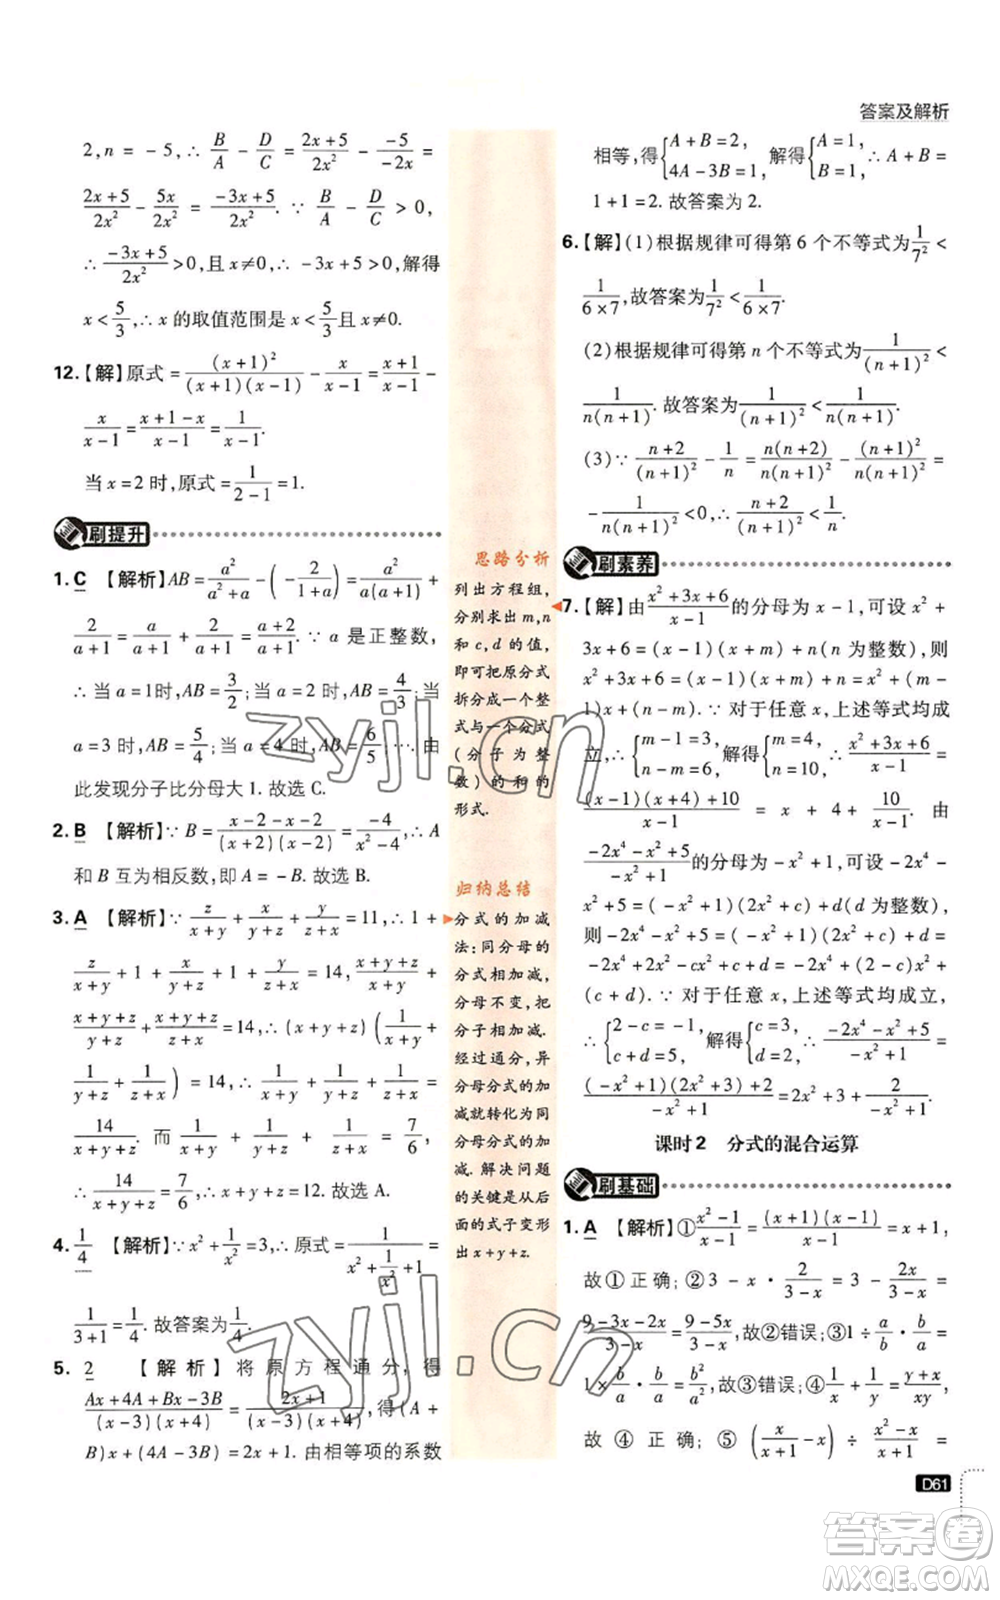 答案及解析
2,n = -5,∴ B/A - D/C = (2x+5)/(2x²) - (-5)/(-2x) =
(2x+5)/(2x²) - 5x/(2x²) = (-3x+5)/(2x²). ∵ B/A - D/C > 0,
∴ (-3x+5)/(2x²) > 0,且 x≠0,∴ -3x+5>0,解得
x < 5/3,∴ x 的取值范围是 x < 5/3 且 x≠0.
12.【解】原式 = (x+1)²/((x+1)(x-1)) - x/(x-1) = (x+1)/(x-1) -
x/(x-1) = (x+1-x)/(x-1) = 1/(x-1).
当 x=2 时,原式 = 1/(2-1) = 1.
刷提升
1. C 【解析】AB = a²/(a²+a) - (-2/(1+a)) = a²/(a(a+1)) +
2/(a+1) = a/(a+1) + 2/(a+1) = (a+2)/(a+1). ∵ a 是正整数,
∴ 当 a=1时,AB = 3/2;当 a=2 时,AB = 4/3;当
a=3 时,AB = 5/4;当 a=4 时,AB = 6/5;…. 由
此发现分子比分母大 1. 故选 C.
2. B 【解析】∵ B = (x-2-x-2)/((x+2)(x-2)) = -4/(x²-4),∴ A
和 B 互为相反数,即 A = -B. 故选 B.
3. A 【解析】∵ z/(x+y) + x/(y+z) + y/(z+x) = 11,∴ 1 +
z/(x+y) + 1 + x/(y+z) + 1 + y/(z+x) = 14,∴ (x+y+z)/(x+y) +
(x+y+z)/(y+z) + (x+y+z)/(z+x) = 14,∴ (x+y+z)(1/(x+y) +
1/(y+z) + 1/(z+x)) = 14,∴ 1/(x+y) + 1/(y+z) + 1/(z+x) =
14/(x+y+z). 而 1/(x+y) + 1/(y+z) + 1/(z+x) = 7/6,
∴ 14/(x+y+z) = 7/6,∴ x+y+z = 12. 故选 A.
4. 1/4 【解析】∵ x² + 1/x² = 3,∴ 原式 = 1/(x² + 1/x² + 1) =
1/(3+1) = 1/4. 故答案为 1/4.
5. 2 【解析】将原方程通分,得
(Ax+4A+Bx-3B)/((x-3)(x+4)) = (2x+1)/((x-3)(x+4)),∴ (A+
B)x + (4A-3B) = 2x+1. 由相等项的系数
思路分析
列出方程组,
分别求出 m,n
和 c,d 的值,
即可把原分式
拆分成一个整
式与一个分式
(分子为整
数)的和的
形式.
归纳总结
分式的加减
法:同分母的
分式相加减,
分母不变,把
分子相加减.
经过通分,异
分母分式的加
减就转化为同
分母分式的加
减. 解决问题
的关键是从后
面的式子变形
出 x+y+z.
相等,得{A+B=2, 4A-3B=1,解得{A=1, B=1,∴ A+B =
1+1=2. 故答案为 2.
6.【解】(1)根据规律可得第 6 个不等式为 1/7² <
1/(6×7),故答案为 1/7² < 1/(6×7).
(2)根据规律可得第 n 个不等式为 1/(n+1)² <
1/(n(n+1)). 故答案为 1/(n+1)² < 1/(n(n+1)).
(3)∵ (n+2)/(n+1)² - 1/n = n(n+2)/(n(n+1)²) - (n+1)²/(n(n+1)²) =
-1/(n(n+1)²) < 0,∴ (n+2)/(n+1)² < 1/n.
刷素养
7.【解】由 (x²+3x+6)/(x-1) 的分母为 x-1,可设 x² +
3x+6 = (x-1)(x+m)+n(n 为整数),则
x²+3x+6 = (x-1)(x+m)+n = x²+(m-
1)x+(n-m). ∵ 对于任意 x,上述等式均成
立,∴ {m-1=3, n-m=6,解得{m=4, n=10,∴ (x²+3x+6)/(x-1) =
((x-1)(x+4)+10)/(x-1) = x+4+10/(x-1). 由
(-2x⁴-x²+5)/(-x²+1) 的分母为 -x²+1,可设 -2x⁴ -
x²+5 = (-x²+1)(2x²+c)+d(d 为整数),
则 -2x⁴-x²+5 = (-x²+1)(2x²+c)+d =
-2x⁴+(2-c)x²+(c+d). ∵ 对于任意 x,上述等式均成立,
∴ {2-c=-1, c+d=5,解得{c=3, d=2,∴ (-2x⁴-x²+5)/(-x²+1) =
((-x²+1)(2x²+3)+2)/(-x²+1) = 2x²+3+2/(-x²+1).
课时2 分式的混合运算
刷基础
1. A 【解析】①(x²-1)/(x-1) = (x+1)(x-1)/(x-1) = x+1,
故①正确;②3-x·2/(3-x) = 3-2x/(3-x) =
(9-3x-2x)/(3-x) = (9-5x)/(3-x),故②错误;③1÷a/b·b/a =
1×b/a·b/a = b²/a²,故③错误;④1/x+1/y = (y+x)/(xy),
故④正确;⑤(x/(x+1)-x)÷x/(x+1) =
D61
zyjl.cn
zyjl.cn
答案圈
MXQE.COM